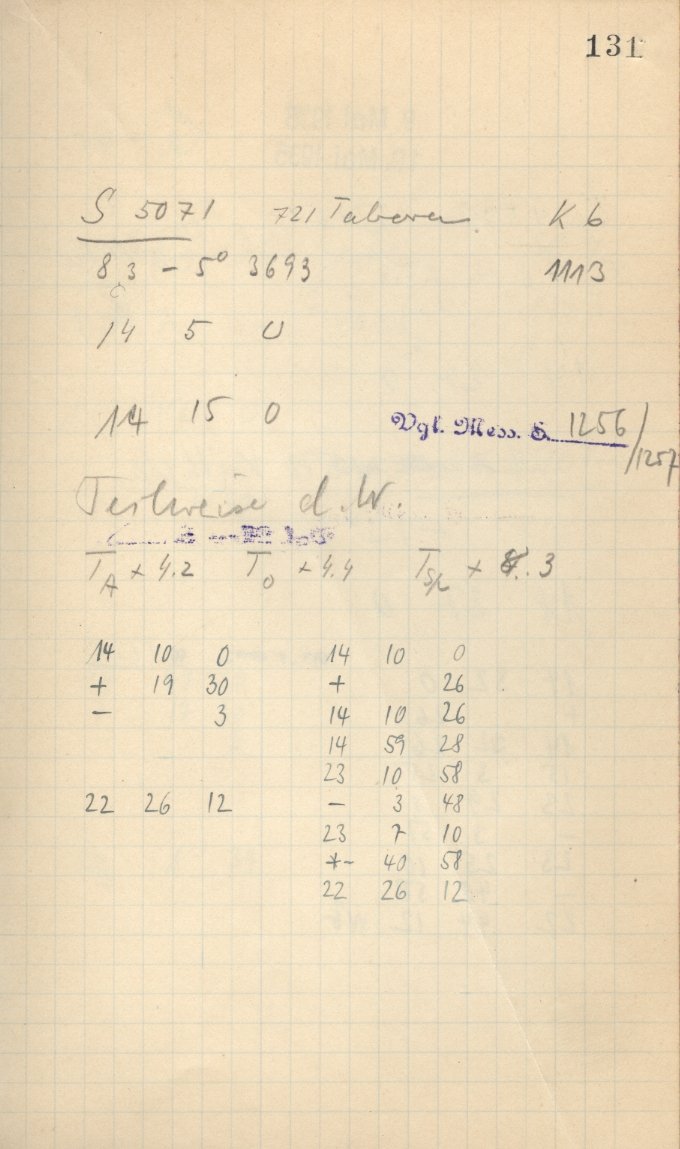 131
S 5071 721 Tabora K 6
8,3 - 5° 3693 1113
14 5 0
14 15 0 Vgl. Mess. S. 1256/
/1257
Teilweise d. W.
T_A + 4.2 T_0 + 4.4 T_Sp + 8.3
14 10 0 14 10 0
+ 19 30 + 26
- 3 14 10 26
14 59 28
23 10 58
22 26 12 - 3 48
23 7 10
*- 40 58
22 26 12